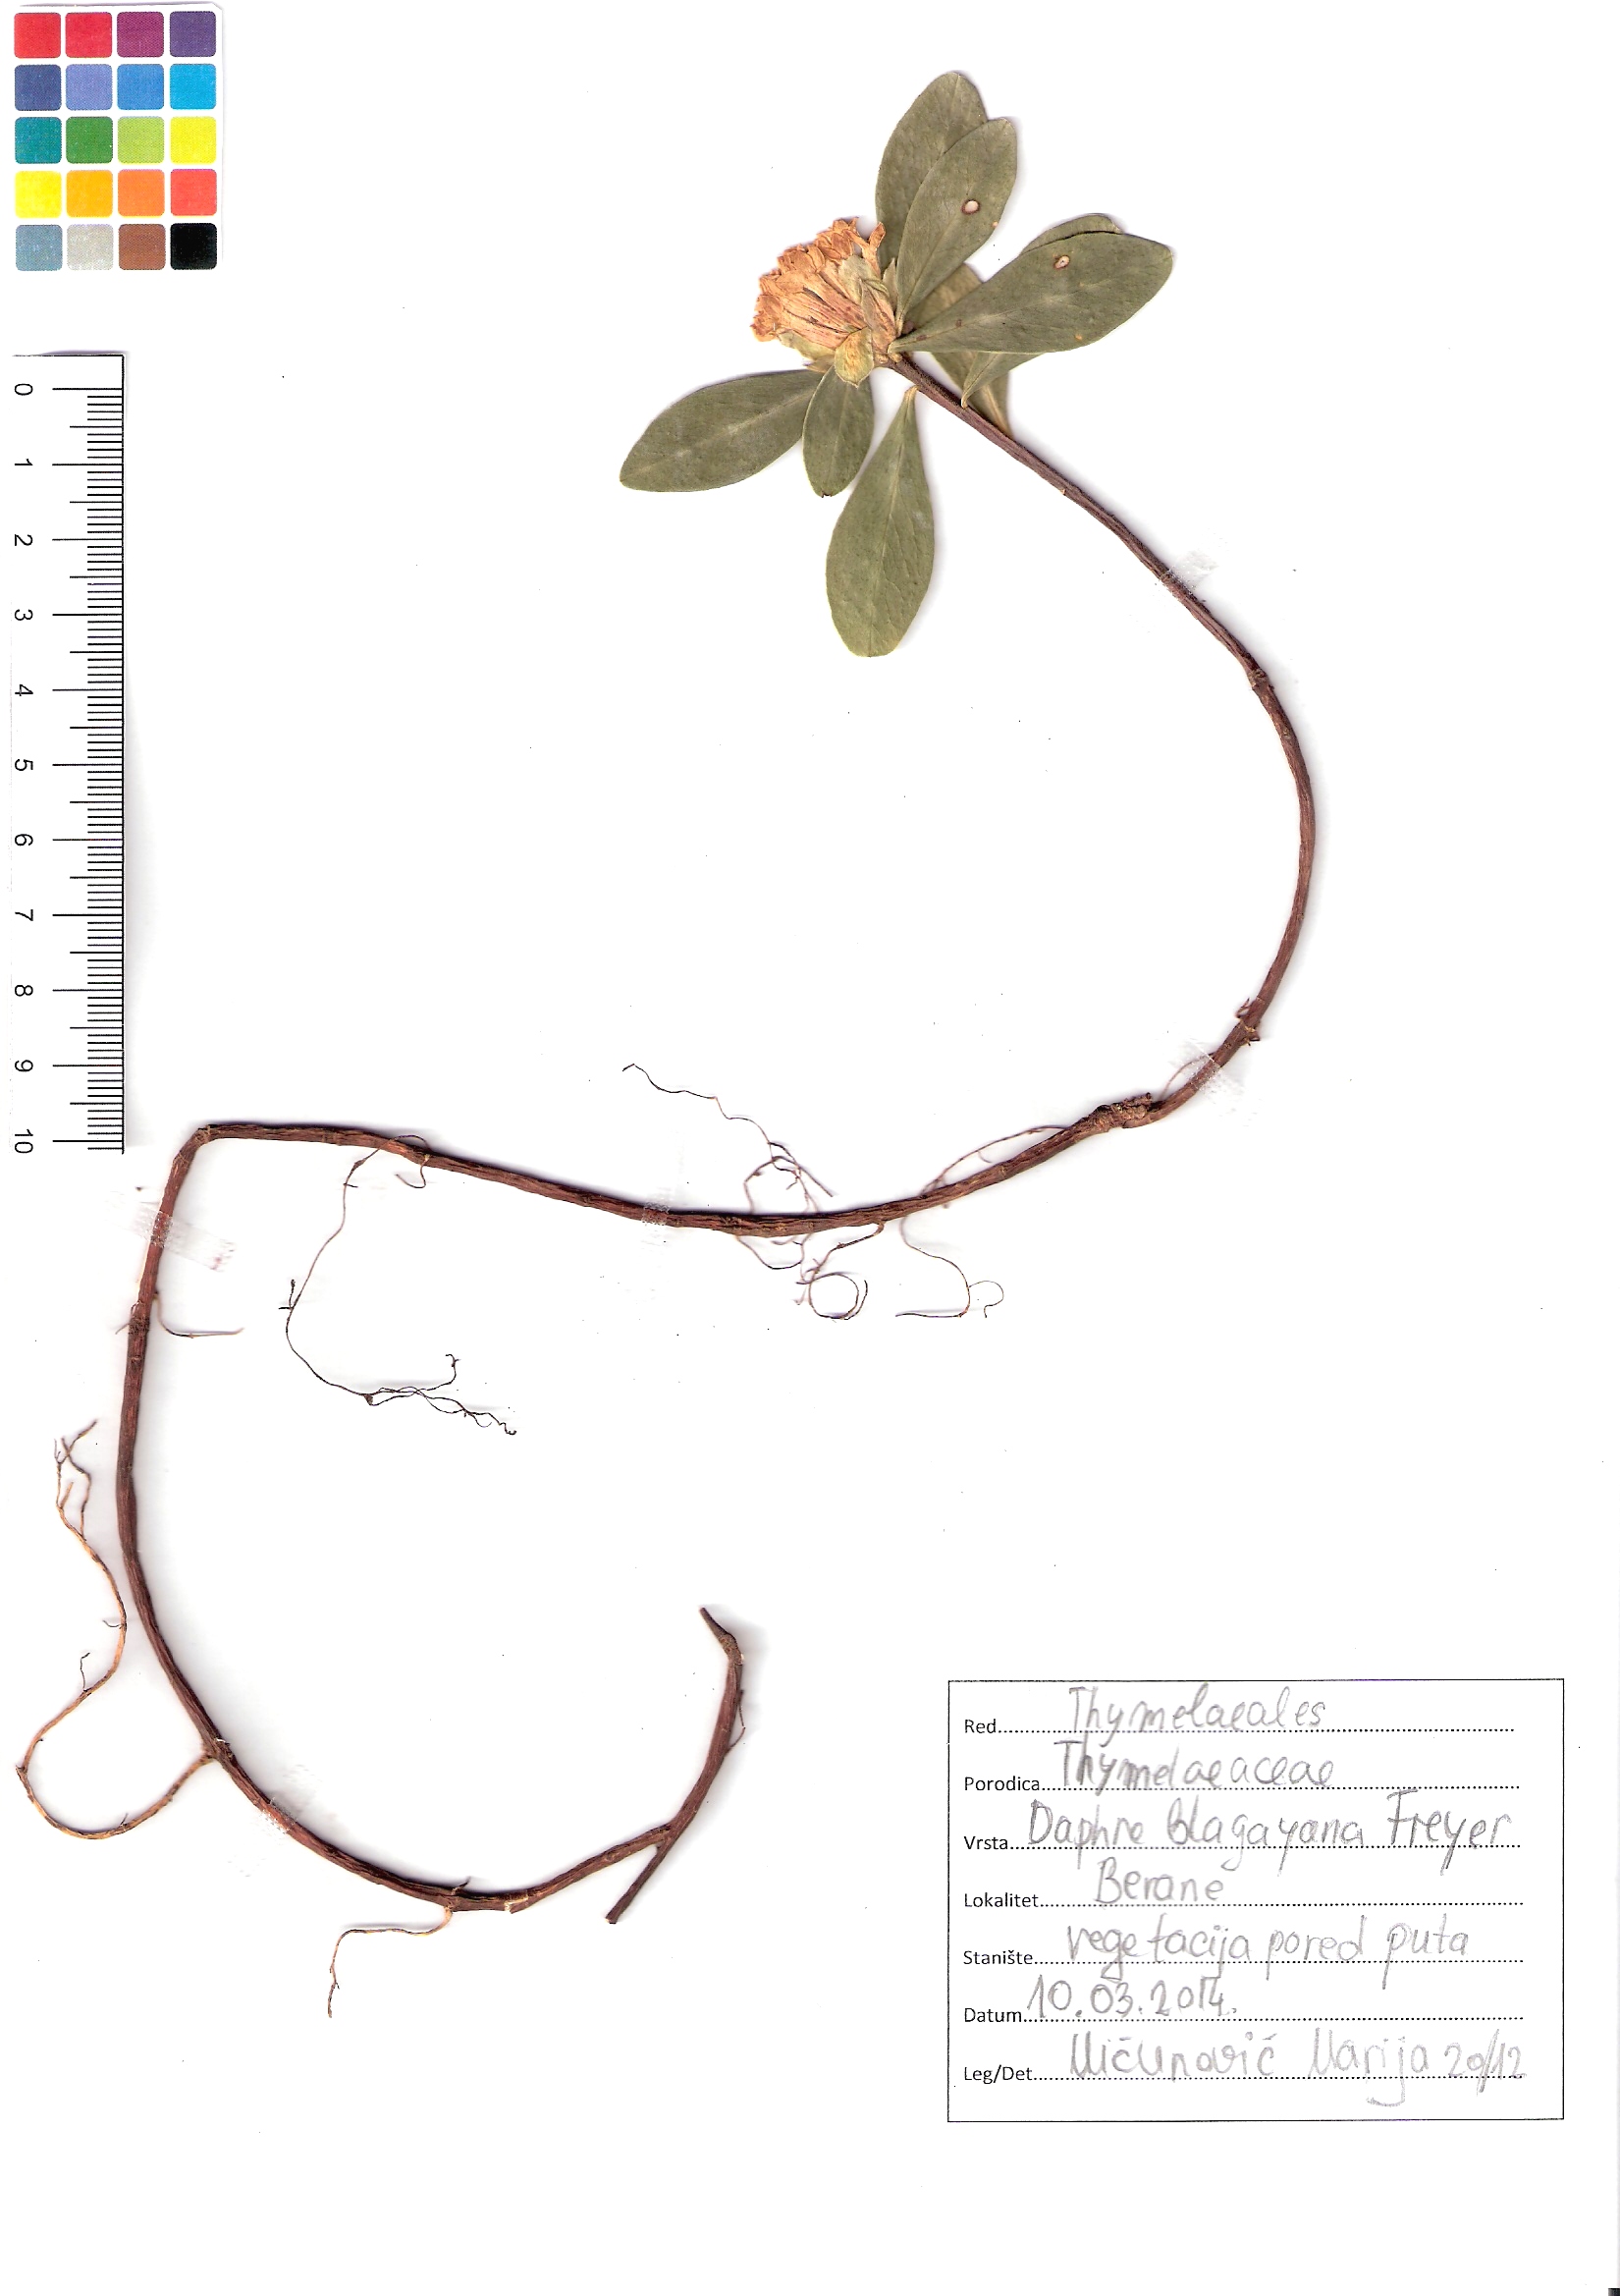 0
1
2
3
4
5
6
7
8
9
10
Red Thymelaeales
Porodica Thymelaeaceae
Vrsta Daphne blagayana Freyer
Lokalitet Berane
Stanište vegetacija pored puta
Datum 10.03.2014.
Leg/Det Mićunović Marija 20/12